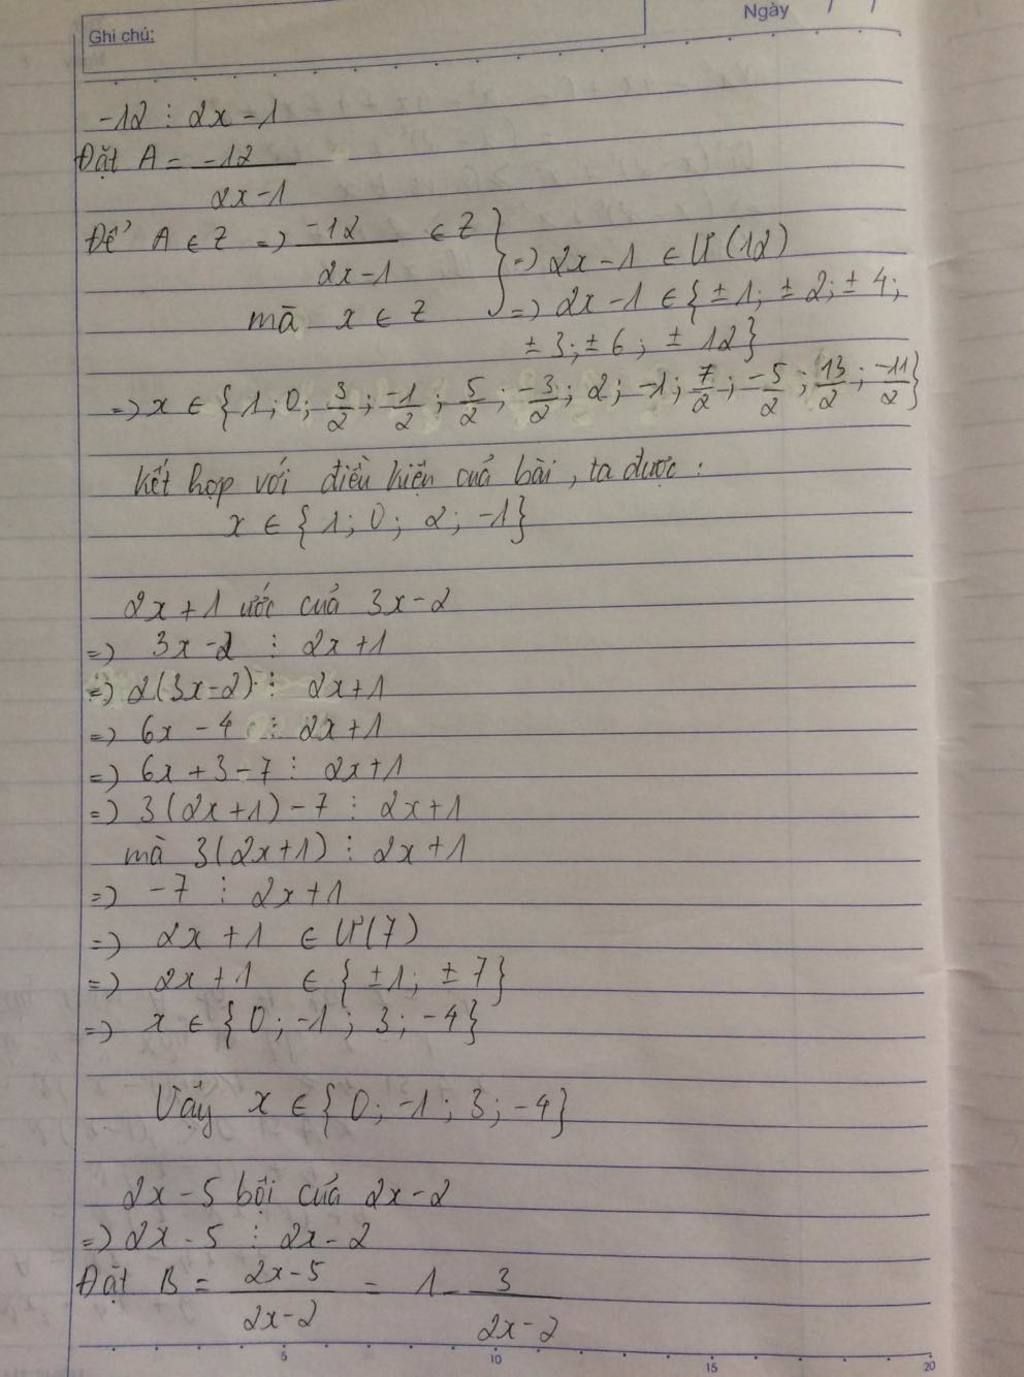 Ghi chú:
Ngày / /
-12 ⋮ 2x - 1
Đặt A = -12/(2x-1)
Để A ∈ Z => -12/(2x-1) ∈ Z } => 2x - 1 ∈ Ư(12)
mà x ∈ Z => 2x - 1 ∈ {±1; ±2; ±4;
±3; ±6; ±12}
=> x ∈ {1; 0; 3/2; -1/2; 5/2; -3/2; 2; -1; 7/2; -5/2; 13/2; -11/2}
Kết hợp với điều kiện của bài, ta được:
x ∈ {1; 0; 2; -1}
2x + 1 ước của 3x - 2
=> 3x - 2 ⋮ 2x + 1
=> 2(3x - 2) ⋮ 2x + 1
=> 6x - 4 ⋮ 2x + 1
=> 6x + 3 - 7 ⋮ 2x + 1
=> 3(2x + 1) - 7 ⋮ 2x + 1
mà 3(2x + 1) ⋮ 2x + 1
=> -7 ⋮ 2x + 1
=> 2x + 1 ∈ Ư(7)
=> 2x + 1 ∈ {±1; ±7}
=> x ∈ {0; -1; 3; -4}
Vậy x ∈ {0; -1; 3; -4}
2x - 5 bội của 2x - 2
=> 2x - 5 ⋮ 2x - 2
Đặt B = (2x-5)/(2x-2) = 1 - 3/(2x-2)
5 10 15 20